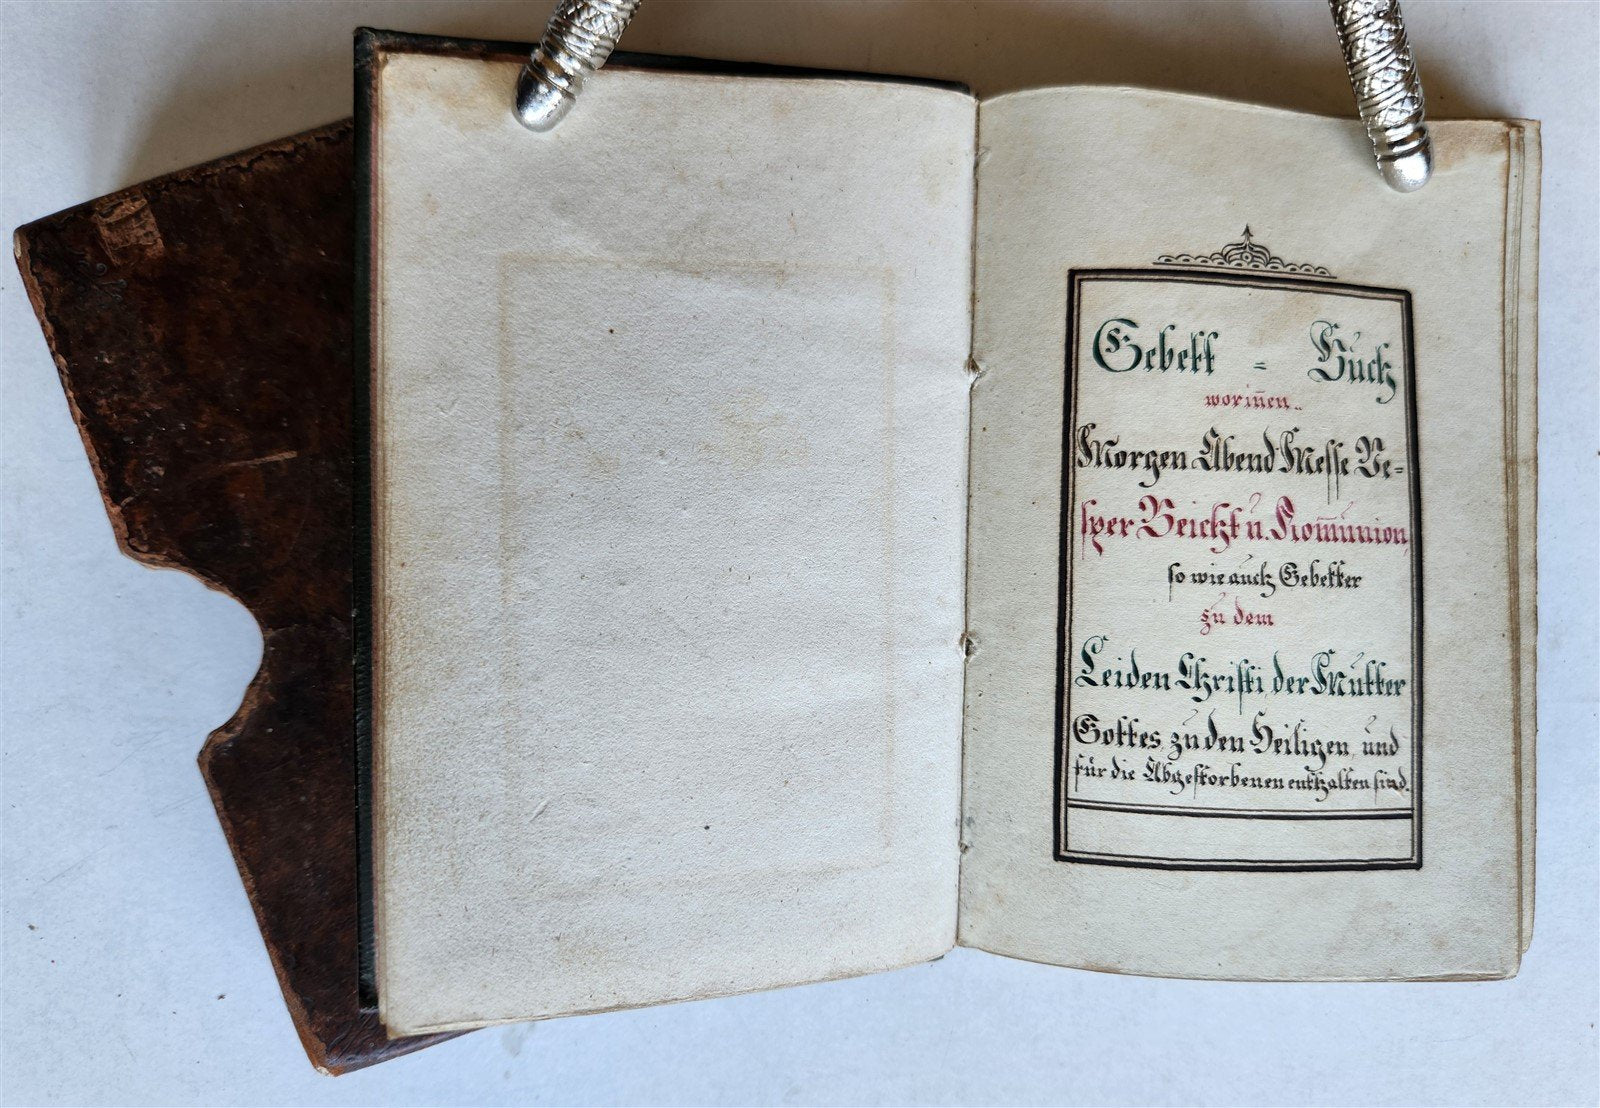 Gebett = Buch
worin̅en..
Morgen Abend Messe Ve=
sper Beicht u. Kom̅union,
so wie auch Gebetter
zu dem
Leiden Christi, der Mutter
Gottes, zu den Heiligen, und
für die Abgestorbenen enthalten sind.